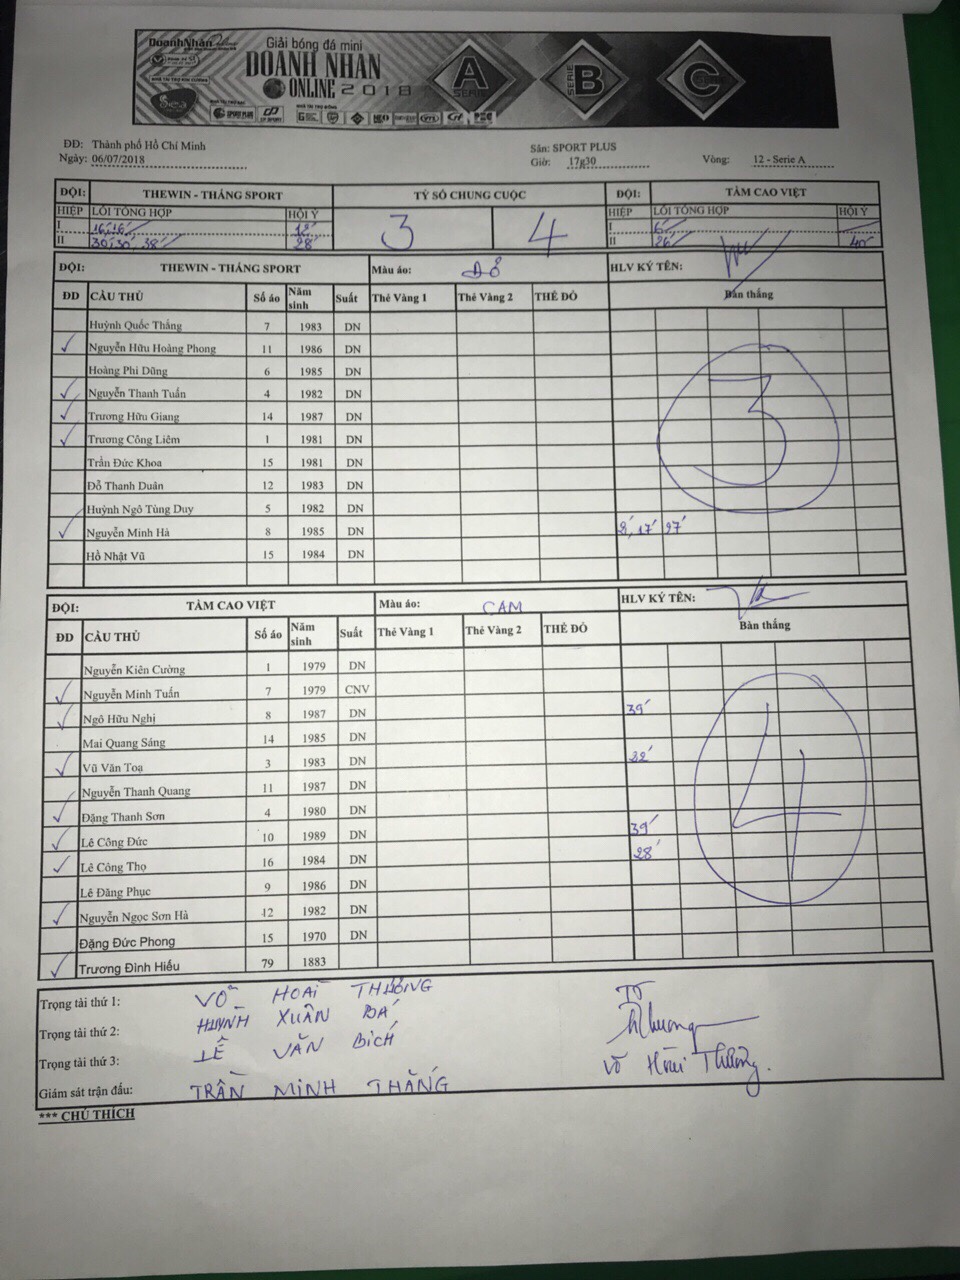 DoanhNhân Online
Giải bóng đá mini
DOANH NHÂN
ONLINE 2018
A SERIE
SERIE B
C
Sea
SPORT PLUS
ĐĐ: Thành phố Hồ Chí Minh Sân: SPORT PLUS
Ngày: 06/07/2018 Giờ: 17g30 Vòng: 12 - Serie A
ĐỘI: THEWIN - THẮNG SPORT TỶ SỐ CHUNG CUỘC ĐỘI: TẦM CAO VIỆT
HIỆP LỖI TỔNG HỢP HỘI Ý 3 4 HIỆP LỖI TỔNG HỢP HỘI Ý
I 16', 16' 12' I 6'
II 30', 30', 38' 28' II 26' 40'
ĐỘI: THEWIN - THẮNG SPORT Màu áo: ĐỎ HLV KÝ TÊN:
ĐD CẦU THỦ Số áo Năm sinh Suất Thẻ Vàng 1 Thẻ Vàng 2 THẺ ĐỎ Bàn thắng
Huỳnh Quốc Thắng 7 1983 DN
Nguyễn Hữu Hoàng Phong 11 1986 DN
Hoàng Phi Dũng 6 1985 DN
Nguyễn Thanh Tuấn 4 1982 DN
Trương Hữu Giang 14 1987 DN
Trương Công Liêm 1 1981 DN
3
Trần Đức Khoa 15 1981 DN
Đỗ Thanh Duân 12 1983 DN
Huỳnh Ngô Tùng Duy 5 1982 DN
Nguyễn Minh Hà 8 1985 DN 8', 17' 27'
Hồ Nhật Vũ 15 1984 DN
ĐỘI: TẦM CAO VIỆT Màu áo: CAM HLV KÝ TÊN:
ĐD CẦU THỦ Số áo Năm sinh Suất Thẻ Vàng 1 Thẻ Vàng 2 THẺ ĐỎ Bàn thắng
Nguyễn Kiên Cường 1 1979 DN
Nguyễn Minh Tuấn 7 1979 CNV
Ngô Hữu Nghị 8 1987 DN 39'
Mai Quang Sáng 14 1985 DN
Vũ Văn Toạ 3 1983 DN 22'
Nguyễn Thanh Quang 11 1987 DN
4
Đặng Thanh Sơn 4 1980 DN
Lê Công Đức 10 1989 DN 39'
Lê Công Thọ 16 1984 DN 28'
Lê Đăng Phục 9 1986 DN
Nguyễn Ngọc Sơn Hà 12 1982 DN
Đặng Đức Phong 15 1970 DN
Trương Đình Hiếu 79 1883
Trọng tài thứ 1: VÕ HOÀI THƯƠNG TT
Trọng tài thứ 2: HUỲNH XUÂN BÁ
Trọng tài thứ 3: LÊ VĂN BÍCH Võ Hoài Thương
Giám sát trận đấu: TRẦN MINH THẮNG
*** CHÚ THÍCH